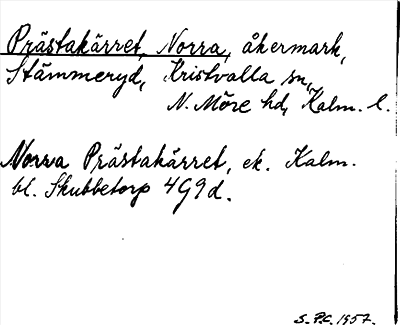 Prästakärret, Norra, åkermark,
Stämmeryd, Kristvalla sn,
N. Möre hd, Kalm. l.
Norra Prästakärret, ek. Kalm.
bl. Skubbetorp 4G9d.
S.P.C. 1957.